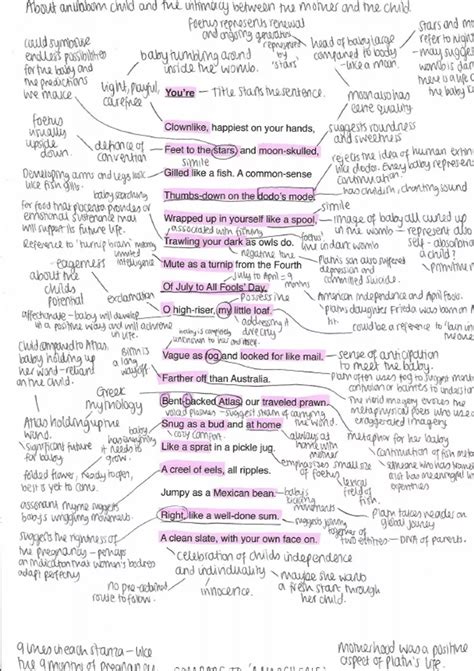 About an unborn child and the intimacy between the mother and the child.
foetus represents renewal
and ongoing generation
represented
by
'stars'
could symbolise
endless possibilities
for the baby and
the predictions
we make
baby tumbling around
inside the womb.
head of baby large
compared to body
- like a moon.
stars and
refer to night
- may suggest
womb is dark
light, playful,
carefree
You're - Title starts the sentence.
moon also has
quality
Clownlike, happiest on your hands,
suggests roundness
and sweetness
foetus
usually
upside
down
defiance of
convention
Feet to the stars, and moon-skulled,
simile
rejects the idea of human extinction
like dodo. Every baby represents
continuation.
Gilled like a fish. A common-sense
Developing arms and legs look
like fish gills.
has childish, chanting sound
Thumbs-down on the dodo's mode.
baby searching
for food that placenta provides or
emotional sustenance that
will support its future life.
Wrapped up in yourself like a spool,
simile
image of baby all curled up
in the womb - represent also
self-absorbed
a child?
associated with fishing
Trawling your dark as owls do.
foetus'
negative tone
Reference to 'turnip brain' meaning
limited
intelligence
Mute as a turnip from the Fourth
Plath also suffered
depression and
committed suicide.
July to April = 9
months
Of July to All Fools' Day,
eagerness
about the
childs
potential
exclamation
possessive
American independence and April Fools.
Plaths daughter Frieda was born on
O high-riser, my little loaf.
addressing it
directly
affectionate - baby will develop
in a positive way and will achieve
in life.
could be a reference to 'bun in
baby is completely
unknown to her and itself.
Vague as fog and looked for like mail.
sense of anticipation
to meet the baby.
Child compared to Atlas.
baby holding up
her world - reliant
on the child.
Birth is
a long
way off
Farther off than Australia.
Plath often uses fog to suggest
confusion or barriers to understanding
Greek
mythology
Bent-backed Atlas, our traveled prawn.
voiced plosives - suggest strain of carrying
the world.
the weird imagery evokes the
metaphysical poets who used
exaggerated imagery
Atlas holding up the
world.
Snug as a bud and at home
cosy comfort.
always at
home with
mum
metaphor for her baby
significant future
for baby
baby
has everything
it needs to
grow.
Like a sprat in a pickle jug.
emphasizes small size
of foetus
continuation of fish
someone who has
A creel of eels, all ripples.
folded flower, ready to open,
but is yet to come.
lexical
field of
fish.
Jumpy as a Mexican bean.
baby's
kicking
movements
Plath takes a
global journey
assonant rhyme suggests
baby's wriggling movements.
Right, like a well-done sum.
suggests joining
together of
two entities
- DNA of parents.
suggests the rightness of
the pregnancy - perhaps
an indication that women's bodies
adapt perfectly
A clean slate, with your own face on.
celebration of childs independence
and individuality
no pre-ordained
route to follow.
innocence.
maybe she wants
a fresh start through
her child.
9 lines in each stanza - like
the 9 months of pregnancy
motherhood was a positive
aspect of Plath's life.